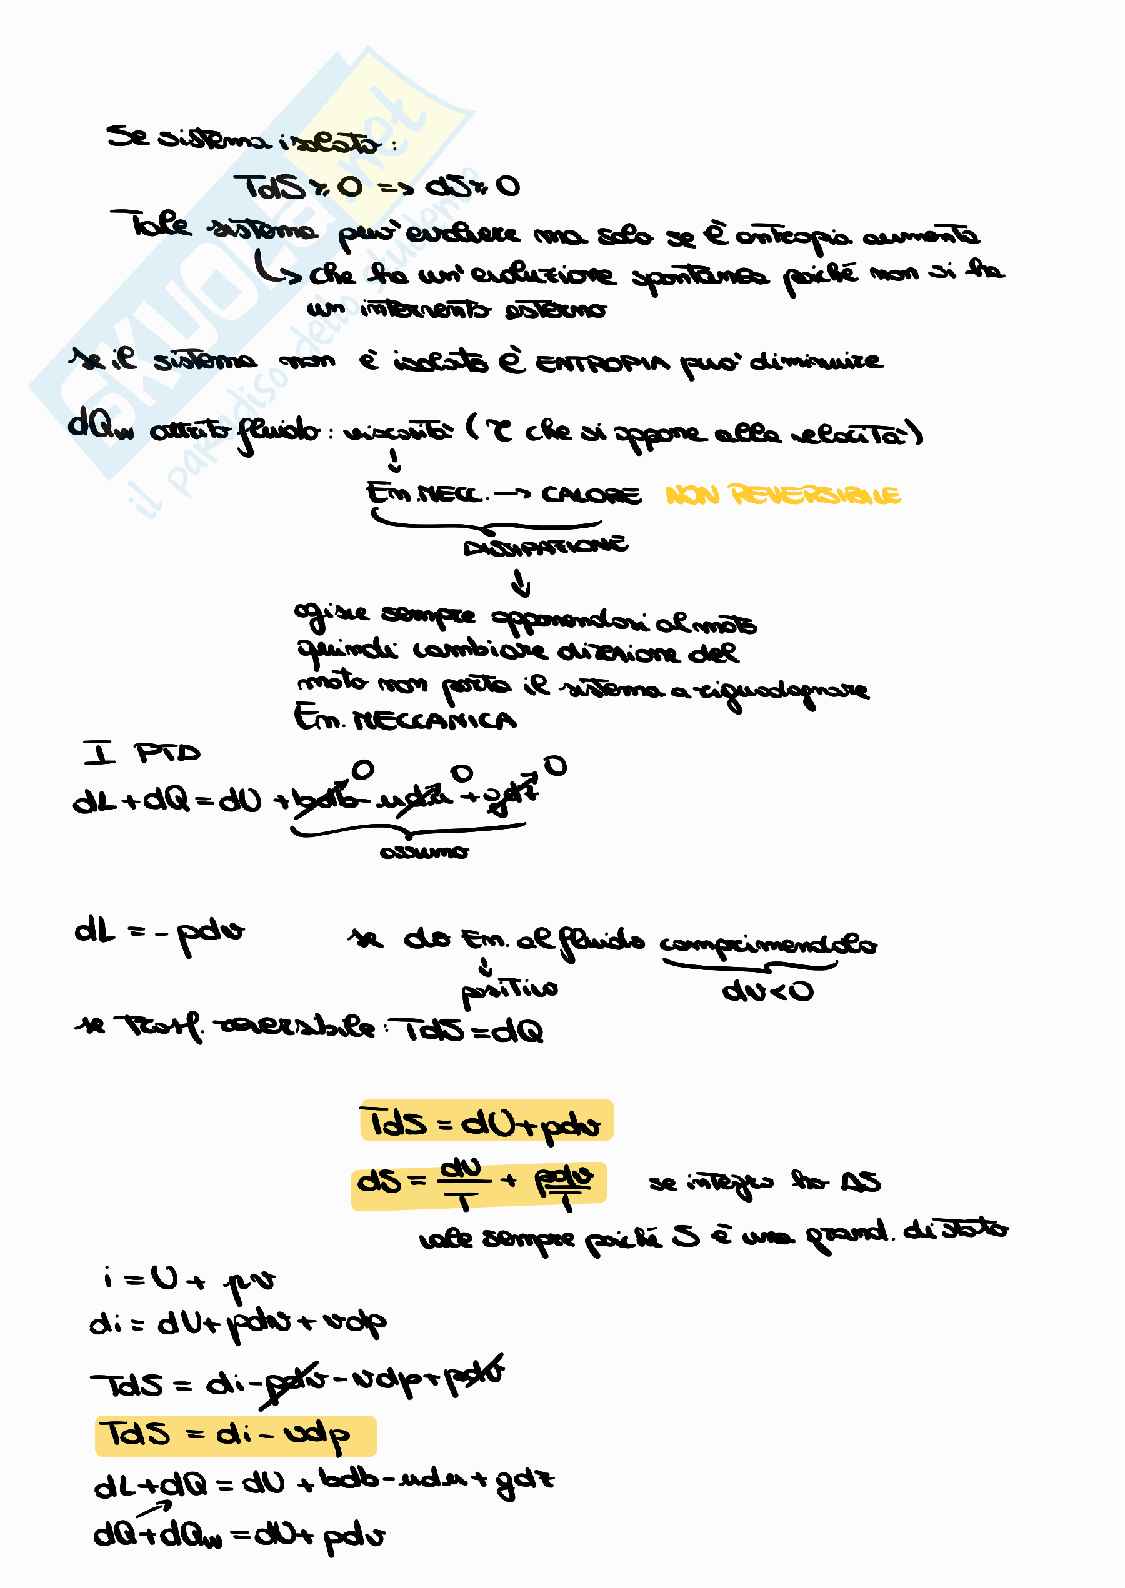 SKUOLA.net
il paradiso dello studente
Se sistema isolato:
TdS ≥ 0 => dS ≥ 0
Tale sistema puo' evolvere ma solo se l'entropia aumenta
↳ che ha un' evoluzione spontanea poiché non si ha
un intervento esterno
se il sistema non è isolato l'ENTROPIA puo' diminuire
dQw attrito fluido: viscosità (τ che si oppone alla velocità)
↓
En. MECC. → CALORE NON REVERSIBILE
DISSIPAZIONE
↓
agisce sempre opponendosi al moto
quindi cambiare direzione del
moto non porta il sistema a riguadagnare
En. MECCANICA
I PTD
0 0 0
dL + dQ = dU + bdb - udu + gdz
assumo
dL = - pdv se do En. al fluido comprimendolo
↓
positivo dv<0
se Trasf. reversibile: TdS = dQ
TdS = dU + pdv
dS = dU/T + pdv/T se integro ho ΔS
vale sempre poiché S è una grand. di stato
i = U + pv
di = dU + pdv + vdp
TdS = di - pdv - vdp + pdv
TdS = di - vdp
dL + dQ = dU + bdb - udu + gdz
dQ + dQw = dU + pdv